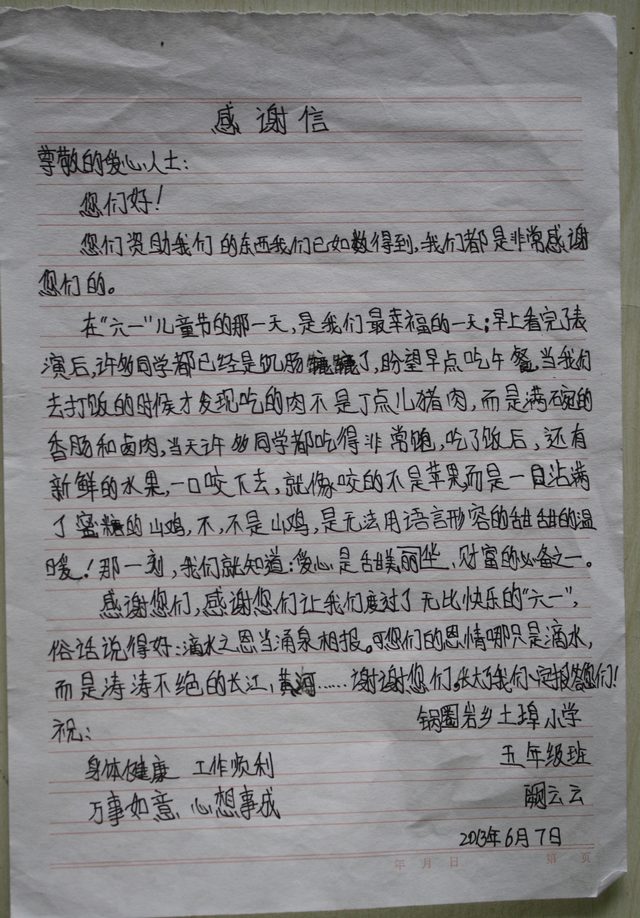 感谢信
尊敬的爱心人士:
您们好!
您们资助我们的东西我们已如数得到,我们都是非常感谢
您们的。
在“六一”儿童节的那一天,是我们最幸福的一天;早上看完了表
演后,许多同学都已经是饥肠辘辘了,盼望早点吃午餐,当我们
去打饭的时候才发现吃的肉不是丁点儿猪肉,而是满碗的
香肠和卤肉,当天许多同学都吃得非常饱,吃了饭后,还有
新鲜的水果,一口咬下去,就像咬的不是苹果,而是一口沾满
了蜜糖的山鸡,不,不是山鸡,是无法用语言形容的甜甜的温
暖!那一刻,我们就知道:爱心是甜美丽,财富的必备之一。
感谢您们,感谢您们让我们度过了无比快乐的“六一”,
俗话说得好:滴水之恩当涌泉相报。可您们的恩情哪只是滴水,
而是涛涛不绝的长江,黄河……谢谢您们。长大了我们一定报答您们!
锅圈岩乡土埠小学
祝:
五年级班
身体健康 工作顺利
阙云云
万事如意、心想事成
2013年6月7日
年 月 日 第 页